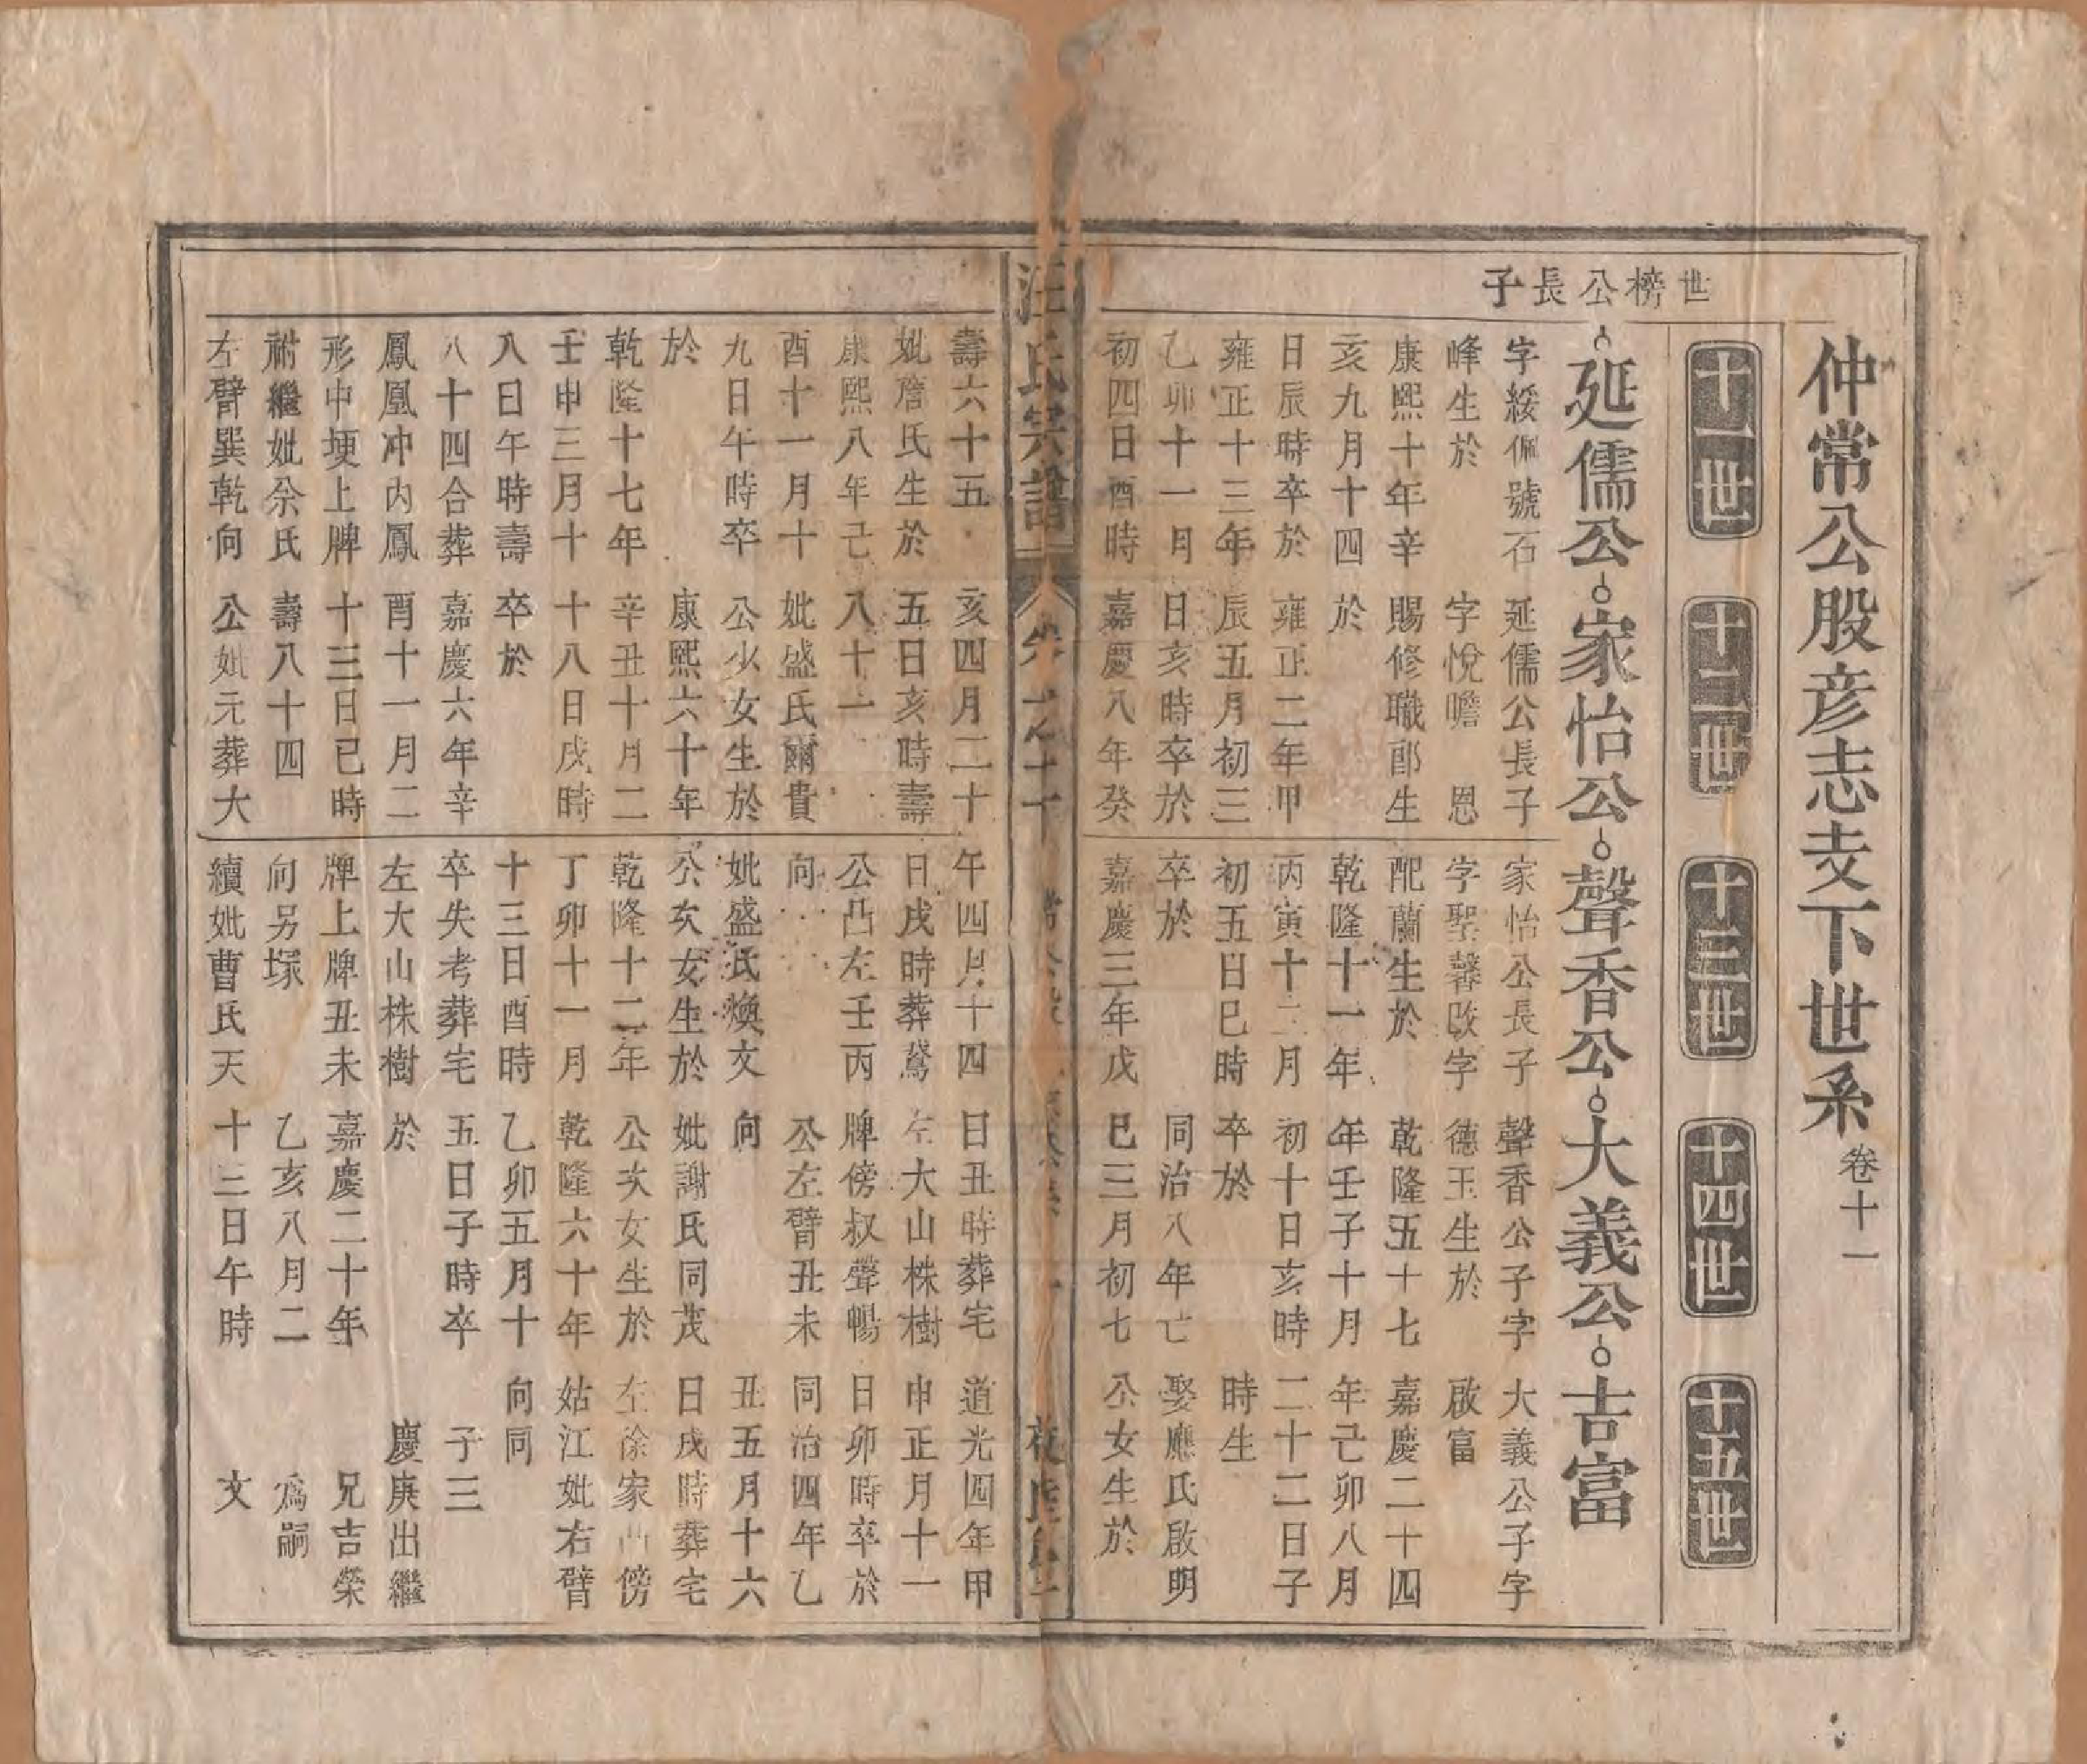 仲常公股彦志支下世系 卷十一
十一世
十二世
十三世
十四世
十五世
世榜公長子
延儒公
家怡公
聲香公
大義公
吉富
字綏佩號石
峰生於
康熙十年辛
亥九月十四
日辰時卒於
雍正十三年
乙卯十一月
初四日酉時
壽六十五
妣詹氏生於
康熙八年己
酉十一月十
九日午時卒
於
乾隆十七年
壬申三月十
八日午時壽
八十四合葬
鳳凰冲內鳳
形中埂上牌
祔繼妣佘氏
左臂巽乾向
延儒公長子
字悅瞻 恩
賜修職郎生
於
雍正二年甲
辰五月初三
日亥時卒於
嘉慶八年癸
亥四月二十
五日亥時壽
八十一
妣盛氏爾貴
公少女生於
康熙六十年
辛丑十月二
十八日戌時
卒於
嘉慶六年辛
酉十一月二
十三日已時
壽八十四
公妣元葬大
家怡公長子
字聖馨改字
配蘭生於
乾隆十一年
丙寅十二月
初五日巳時
卒於
嘉慶三年戊
午四月十四
日戌時葬鵞
公凸左壬丙
向
妣盛氏煥文
公次女生於
乾隆十二年
丁卯十一月
十三日酉時
卒失考葬宅
左大山株樹
牌上牌丑未
向另塚
續妣曹氏天
聲香公子字
德玉生於
乾隆五十七
年壬子十月
初十日亥時
卒於
同治八年亡
巳三月初七
日丑時葬宅
左大山株樹
牌傍叔聲暢
公左臂丑未
向
妣謝氏同茂
公次女生於
乾隆六十年
乙卯五月十
五日子時卒
於
嘉慶二十年
乙亥八月二
十三日午時
大義公子字
啟富
嘉慶二十四
年己卯八月
二十二日子
時生
娶應氏啟明
公女生於
道光四年甲
申正月十一
日卯時卒於
同治四年乙
丑五月十六
日戌時葬宅
左徐家凸傍
姑江妣右臂
向同
子三
慶庚出繼
兄吉榮
為嗣
文
汪氏宗譜
卷之十